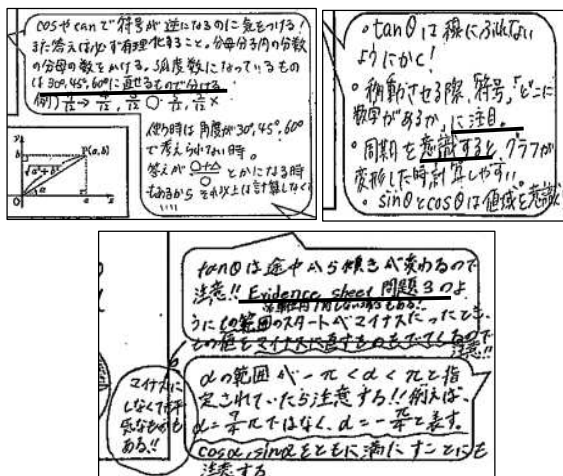 cosやtanで符号が逆になるのに気をつける!
また答えは必ず有理化すること。分母分子内の分数
の分母の数をかける。角度数になっているもの
は30°,45°,60°に直せるもので分ける。
例) 1/12 → 4/12, 3/12 ○ 5/12, 2/12 ×
使う時は角度が30°,45°,60°
で考えられない時。
答えが ○+△/○ とかになる時
もあるから それ以上は計算しなくて
y
b
P(a,b)
√a²+b²
α
O
a
x
・tanθは線にふれない
ようにかく!
・移動させる際、符号、「どこに
数字があるか」に注目。
・周期を意識すると、グラフが
変形した時計算しやすい
・sinθとcosθは値域を意識
tanθは途中から傾きが変わるので
注意!! Evidence sheet 問題3のよ
うにθの範囲のスタートがマイナスだったとき、
その値をマイナスに直すものもでてくるので
注意!!
マイナスに
しなくても平
気なものも
ある!!
αの範囲が -π<α<πと指
定されていたら注意する!!例えば、
α=7/4πではなく、α=-π/4と表す。
cosα,sinαをともに満たすことにも
注意する